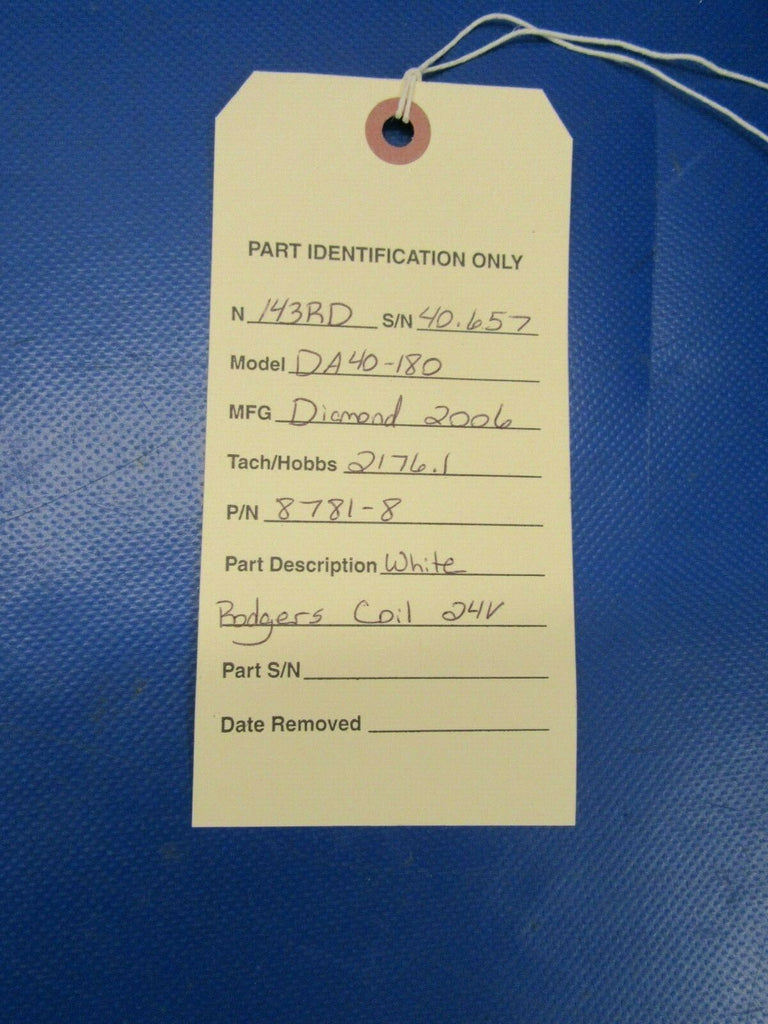 PART IDENTIFICATION ONLY
N 143RD S/N 40.657
Model DA40-180
MFG Diamond 2006
Tach/Hobbs 2176.1
P/N 8781-8
Part Description White
Rodgers Coil 24V
Part S/N
Date Removed